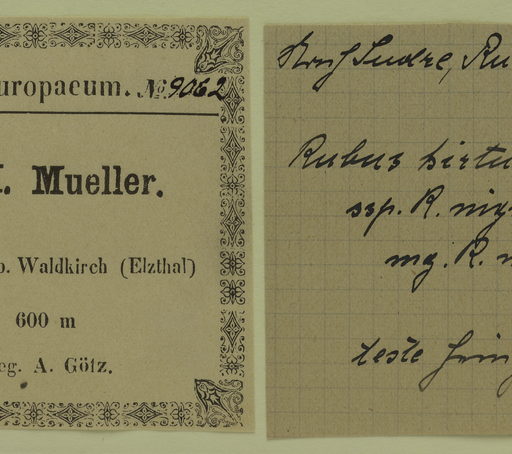 uropaeum. № 9062
I. Mueller.
o. Waldkirch (Elzthal)
600 m
eg. A. Götz.
Sudre, Ru
Rubus hirtu
ssp. R. nig
mg. R. n
teste